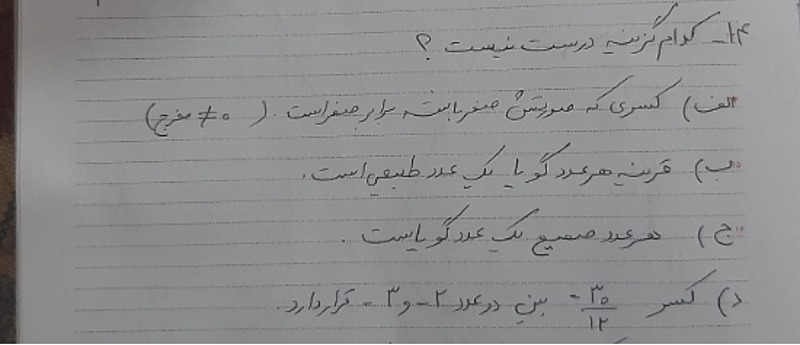 ۱۴- کدام گزینه درست نیست ؟
الف) کسری که صورتش صفر باشد برابر صفر است. (۰ ≠ مخرج)
ب) قرینه هر عدد گویا یک عدد طبیعی است.
ج) هر عدد صحیح یک عدد گویاست.
د) کسر -۳۰/۱۲ بین دو عدد ۲- و ۳- قرار دارد.